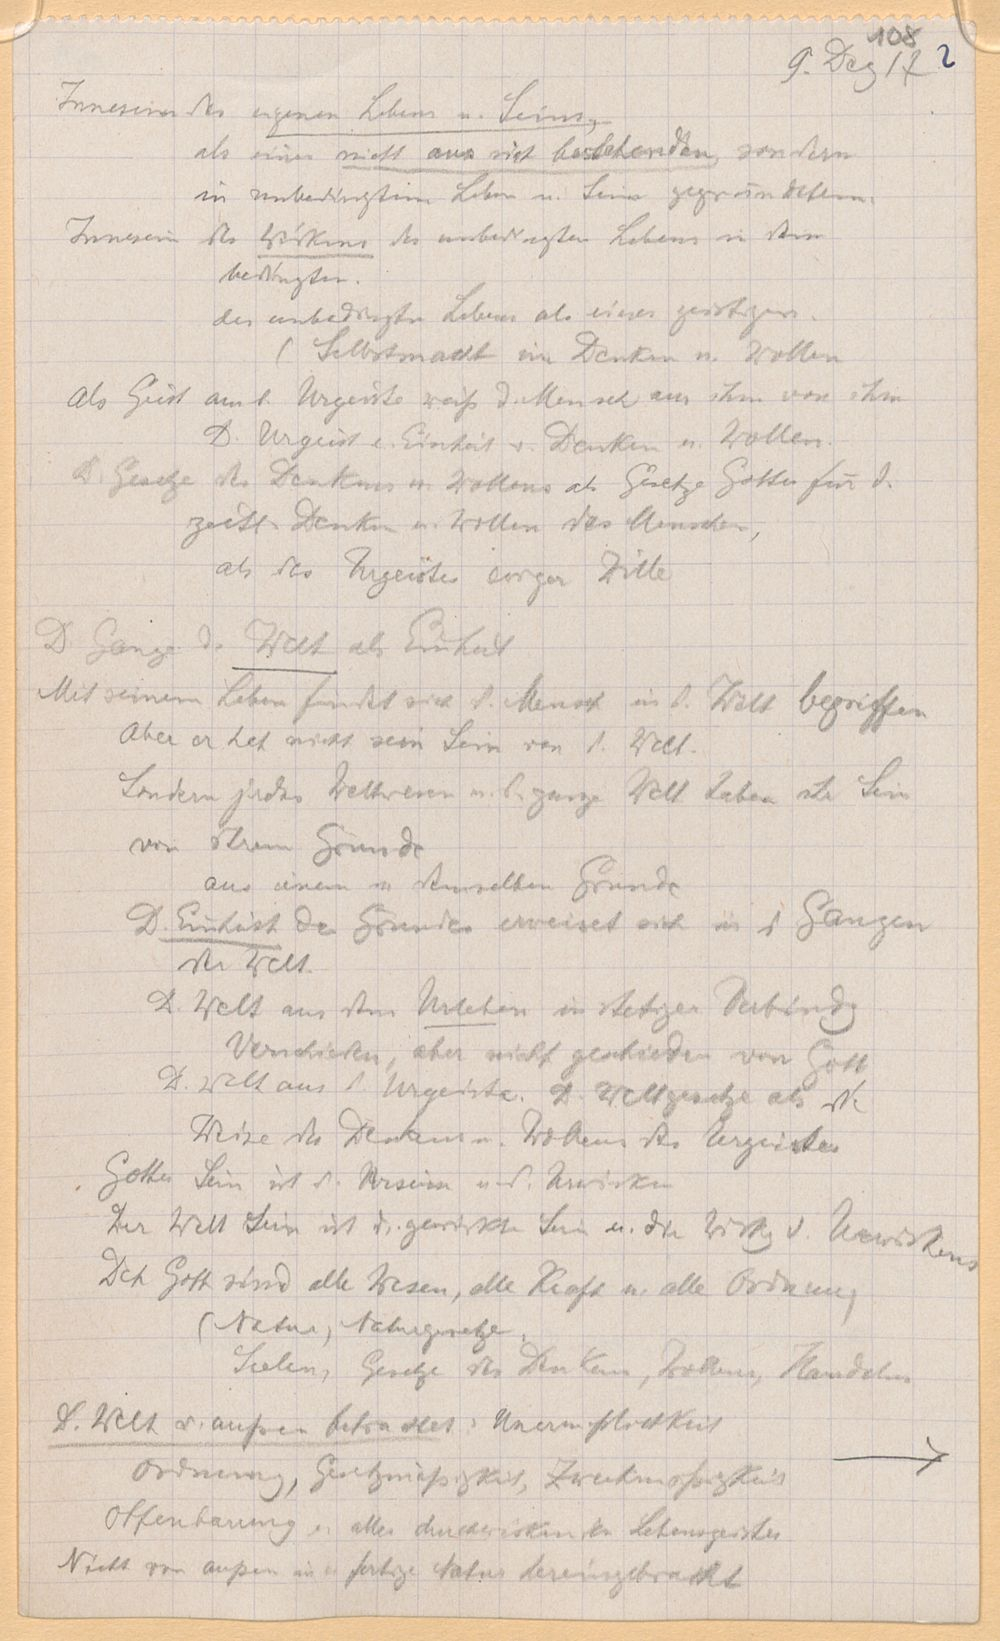 108
9. Dez 17 2
Innesein des eigenen Lebens u. Seins,
als eines nicht aus sich bestehenden, sondern
in unbedingtem Leben u. Sein gegründeten.
Innesein des Wirkens des unbedingten Lebens in dem
bedingten.
des unbedingten Lebens als eines geistigen.
( Selbstmacht im Denken u. Wollen
Als Geist aus d. Urgeiste weiß d. Mensch aus ihm von ihm
D. Urgeist e. Einheit v. Denken u. Wollen.
D. Gesetze des Denkens u. Wollens als Gesetze Gottes für d.
zeitl. Denken u. Wollen des Menschen,
als des Urgeistes ewiger Wille
D Ganze der Welt als Einheit
Mit seinem Leben findet sich d. Mensch in d. Welt begriffen
Aber er hat nicht sein Sein von d. Welt.
Sondern jedes Weltwesen u. d. ganze Welt haben ihr Sein
von ihrem Grunde
aus einem u demselben Grunde
D. Einheit des Grundes erweiset sich in d Ganzen
der Welt.
D. Welt aus dem Urleben in stetiger Verbindg
Verschieden, aber nicht geschieden von Gott
D. Welt aus d. Urgeiste. D. Weltgesetze als die
Weise des Denkens u. Wollens des Urgeistes
Gottes Sein ist d. Ursein u. d. Urwirken
Der Welt Sein ist d. gewirkte Sein u. die Wirkg d. Urwirkens
Dch Gott sind alle Wesen, alle Kraft u. alle Ordnung
(Natur, Naturgesetze,
Seelen, Gesetze des Denkens, Wollens, Handelns
D. Welt v. außen betrachtet: Unermeßlichkeit
Ordnung, Gesetzmäßigkeit, Zweckmäßigkeit
Offenbarung e. alles durchwirkenden Lebensgeistes
Nicht von außen in e fertige Natur hereingebracht